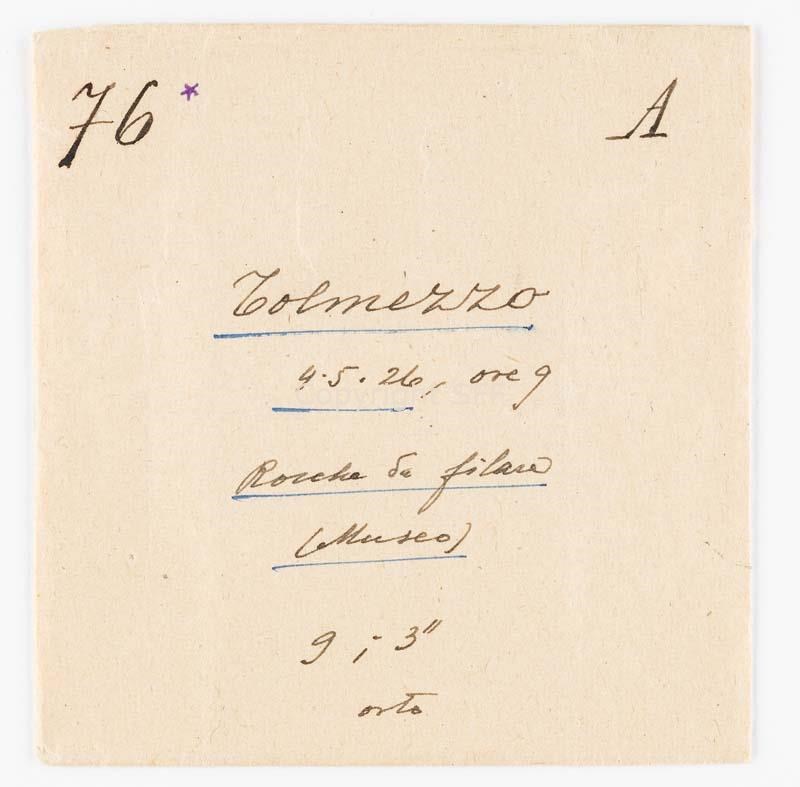 76 * A
Tolmezzo
4.5.26, ore 9
Rocche da filare
(Museo)
9 ; 3"
orto